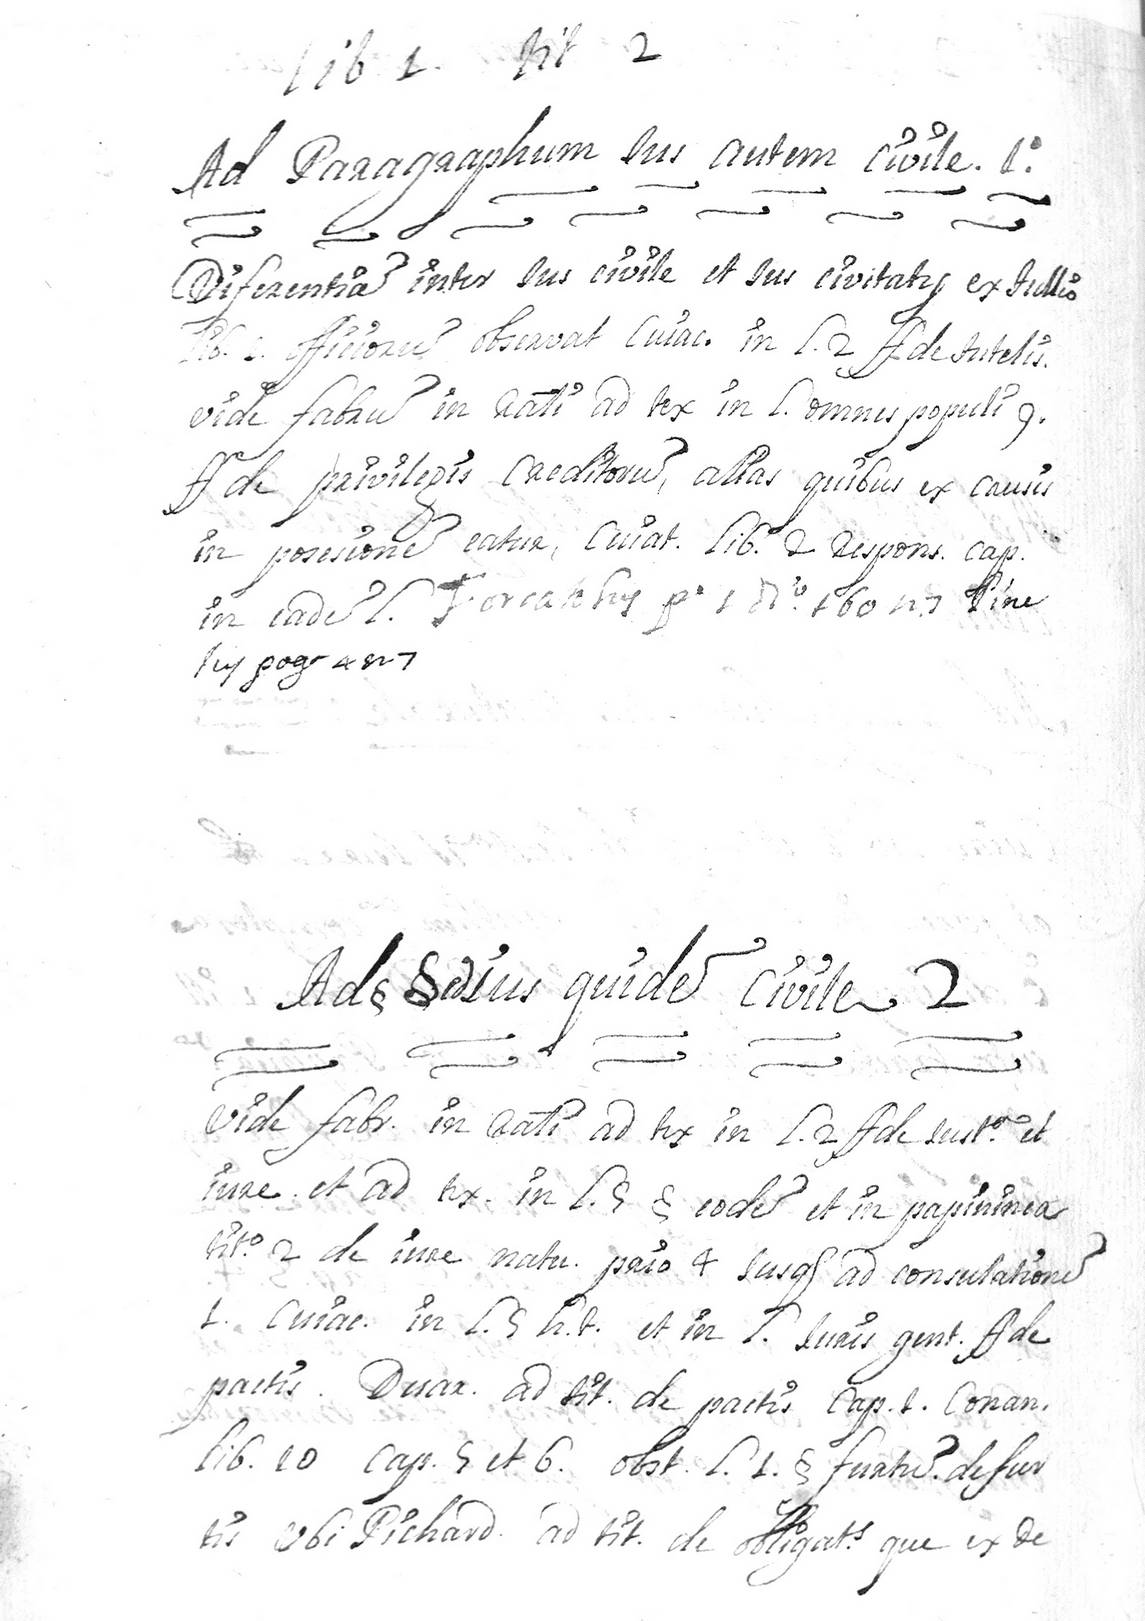 lib 1. tit 2
Ad Paragraphum Ius autem civile. 1.º
Diferentia inter Ius civile et Ius civitatis ex tullio
lib. 1. officioru observat Cuiac. in l. 2 ff de tutelis.
vide fabru in rati ad tex in l. omnes populi 9.
ff de privilegis creditoru, alias quibus ex causis
in posesione eatur, Cuiat. lib. 2 respons. cap.
in eade l. p.º 1 160 n. 7
pag 4 n 7
Ad § ius quide civile 2
vide fabr. in rati ad tex in l. 2 ff de iust.ª et
iure. et ad tex. in l. 5 eode et in papininea
tit.º 2 de iure natu. prio 4 usq ad consulatione
1. Cuiac. in l. 5 h. t. et in l. iuris gent. ff de
pactis. Duar. ad tit. de pactis cap. 1. Conan.
lib. 10 cap. 5 et 6. obst. l. 1. § furtu. de fur
tis ubi Pichard. ad tit. de obligat.s que ex de